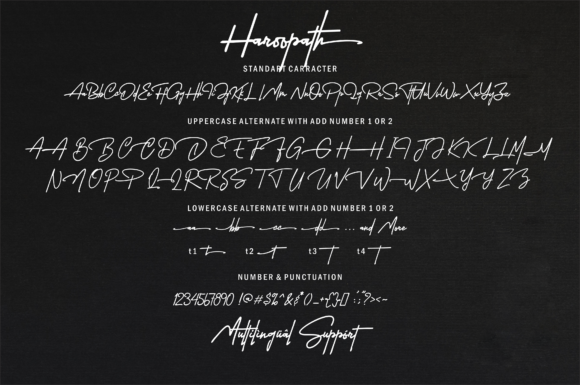 Haroopath
STANDART CARRACTER
AaBbCcDdEeFfGgHhIiJjKkLlMm NnOoPpQqRrSsTtUuVvWwXxYyZz
UPPERCASE ALTERNATE WITH ADD NUMBER 1 OR 2
A A B B C C D D E E F F G G H H I I J J K K L L M M
N N O O P P Q Q R R S S T T U U V V W W X X Y Y Z Z
LOWERCASE ALTERNATE WITH ADD NUMBER 1 OR 2
aa bb cc dd ... and More
t1 t t2 t t3 t t4 t
NUMBER & PUNCTUATION
1234567890 !@#$%^&*()_-+{}[] :;"?><~
Multilingual Support